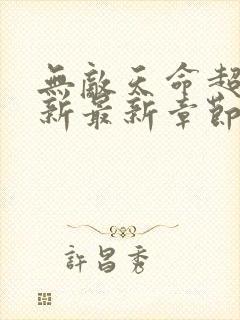 無敵天命超
新最新章節
許昌秀